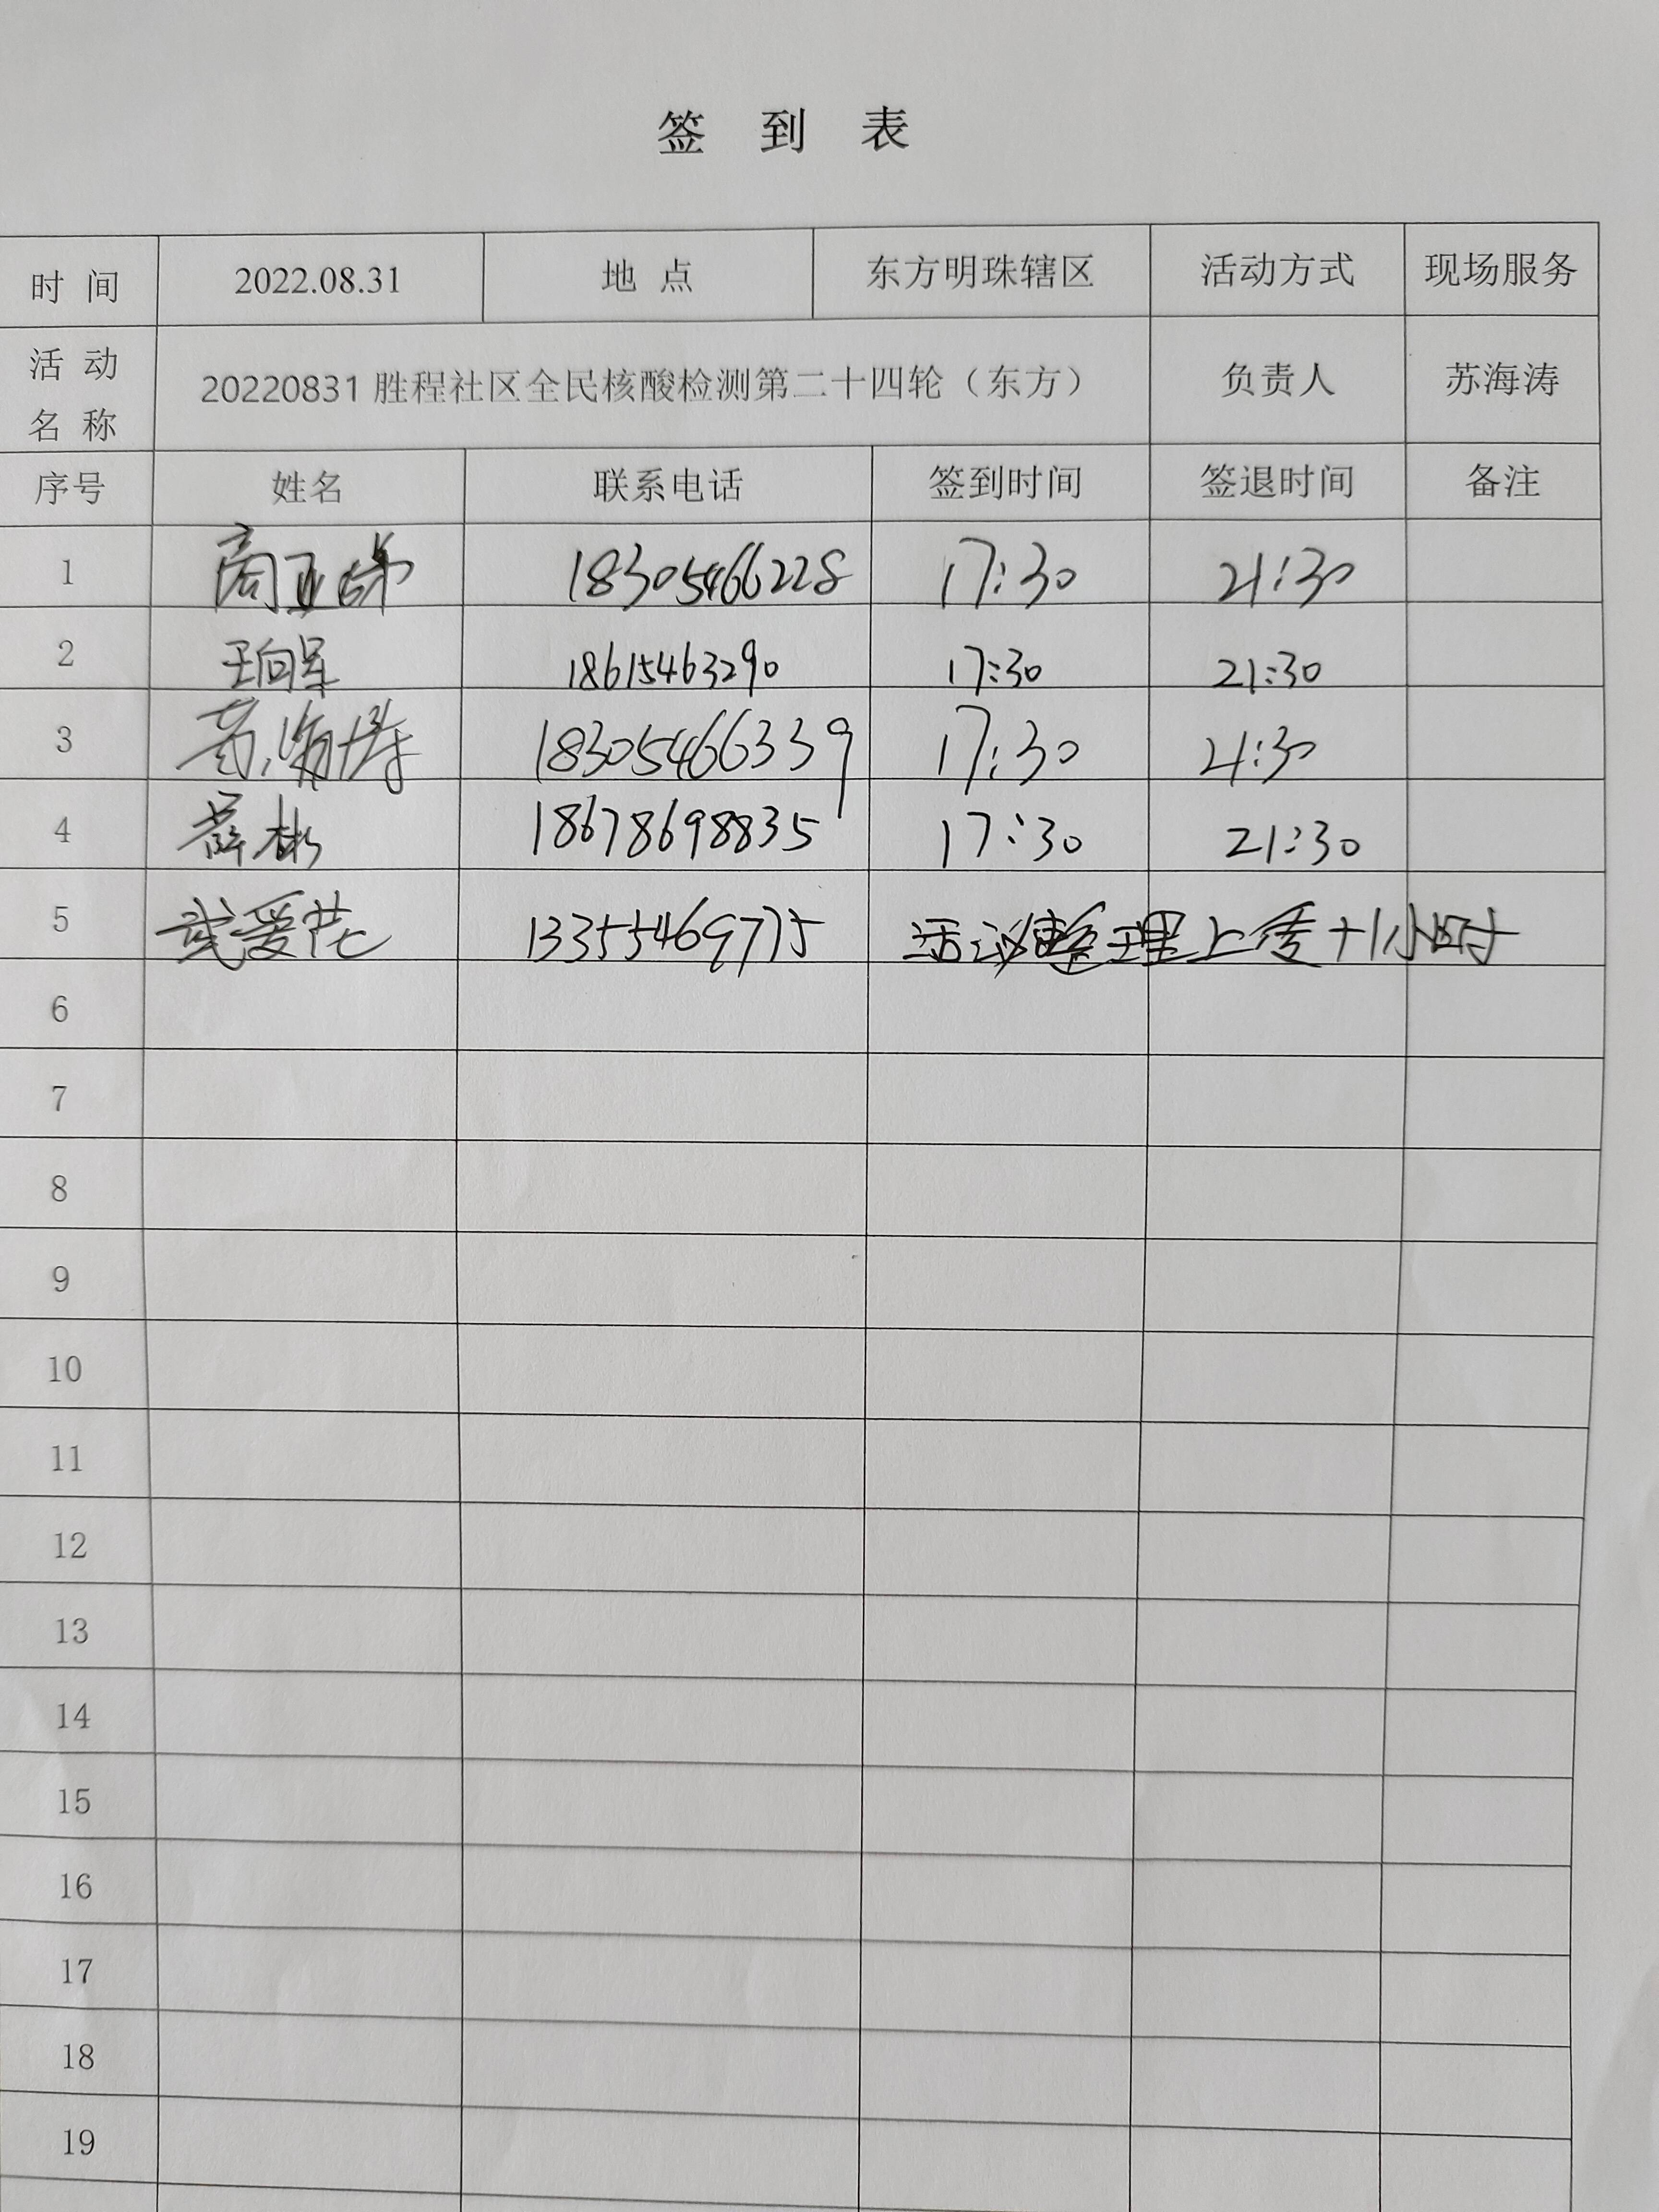 签 到 表
时 间 2022.08.31 地 点 东方明珠辖区 活动方式 现场服务
活 动 名 称 20220831胜程社区全民核酸检测第二十四轮（东方） 负责人 苏海涛
序号 姓名 联系电话 签到时间 签退时间 备注
1 18305466228 17:30 21:30
2 王向军 18615463290 17:30 21:30
3 苏海涛 18305466339 17:30 21:30
4 薛彬 18678698835 17:30 21:30
5 武爱花 13355469775 整理上传+1小时
6
7
8
9
10
11
12
13
14
15
16
17
18
19